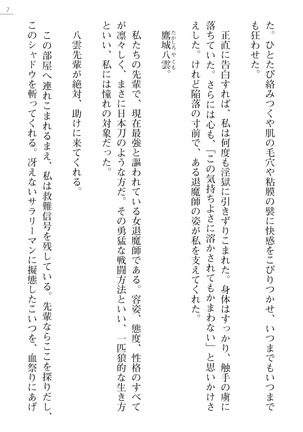 7
た。ひとたび絡みつくや肌の毛穴や粘膜の襞に快感をこびりつかせ、いつまでもいつまで
も狂わせた。
正直に告白すれば、私は何度も淫獄に引きずりこまれた。身体はすっかり、触手の虜に
落ちていた。さらには心も、「この気持ちよさに溶かされてもかまわない」と思いかけさ
えした。けれど陥落の寸前で、ある退魔師の姿が私を支えてくれた。
鷹城八雲。
たかしろやくも
私たちの先輩で、現在最強と謳われている女退魔師である。容姿、態度、性格のすべて
が凛々しく、まさに日本刀のような方だ。その勇猛な戦闘方法といい、一匹狼的な生き方
といい、私には憧れの対象だった。
八雲先輩が絶対、助けに来てくれる。
この部屋へ連れこまれるまえ、私は救難信号を残している。先輩ならここを探りだし、
このシャドウを斬ってくれる。冴えないサラリーマンに擬態したこいつを、血祭りにあげ